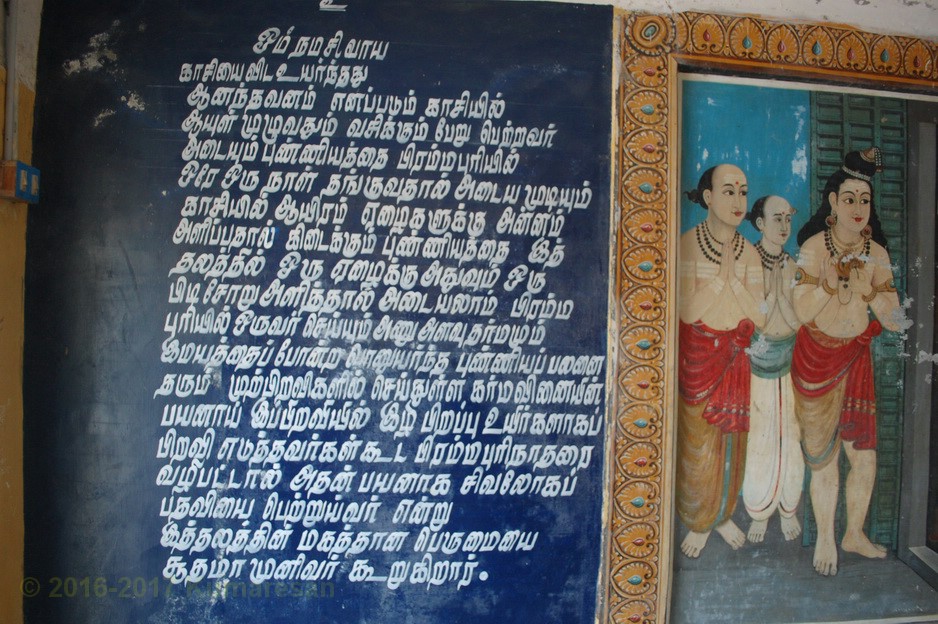 உ
ஓம் நமசிவாய
காசியைவிட உயர்ந்தது
ஆனந்தவனம் எனப்படும் காசியில்
ஆயுள் முழுவதும் வசிக்கும் பேறு பெற்றவர்
அடையும் புண்ணியத்தை பிரம்மபுரியில்
ஒரே ஒரு நாள் தங்குவதால் அடைய முடியும்
காசியில் ஆயிரம் ஏழைகளுக்கு அன்னம்
அளிப்பதால் கிடைக்கும் புண்ணியத்தை இத்
தலத்தில் ஒரு ஏழைக்கு அதுவும் ஒரு
பிடி சோறு அளித்தால் அடையலாம் பிரம்ம
புரியில் ஒருவர் செய்யும் அணு அளவு தர்மமும்
இமயத்தைப் போன்ற வானுயர்ந்த புண்ணியப் பலனை
தரும் முற்பிறவிகளில் செய்துள்ள கர்மவினையின்
பயனாய் இப்பிறவியில் இழி பிறப்பு உயிர்களாகப்
பிறவி எடுத்தவர்கள்கூட பிரம்மபுரிநாதரை
வழிபட்டால் அதன் பயனாக சிவலோகப்
பதவியை பெற்றுய்வர் என்று
இத்தலத்தின் மகத்தான பெருமையை
சூதமா முனிவர் கூறுகிறார்.
© 2016-2017 Kumaresan